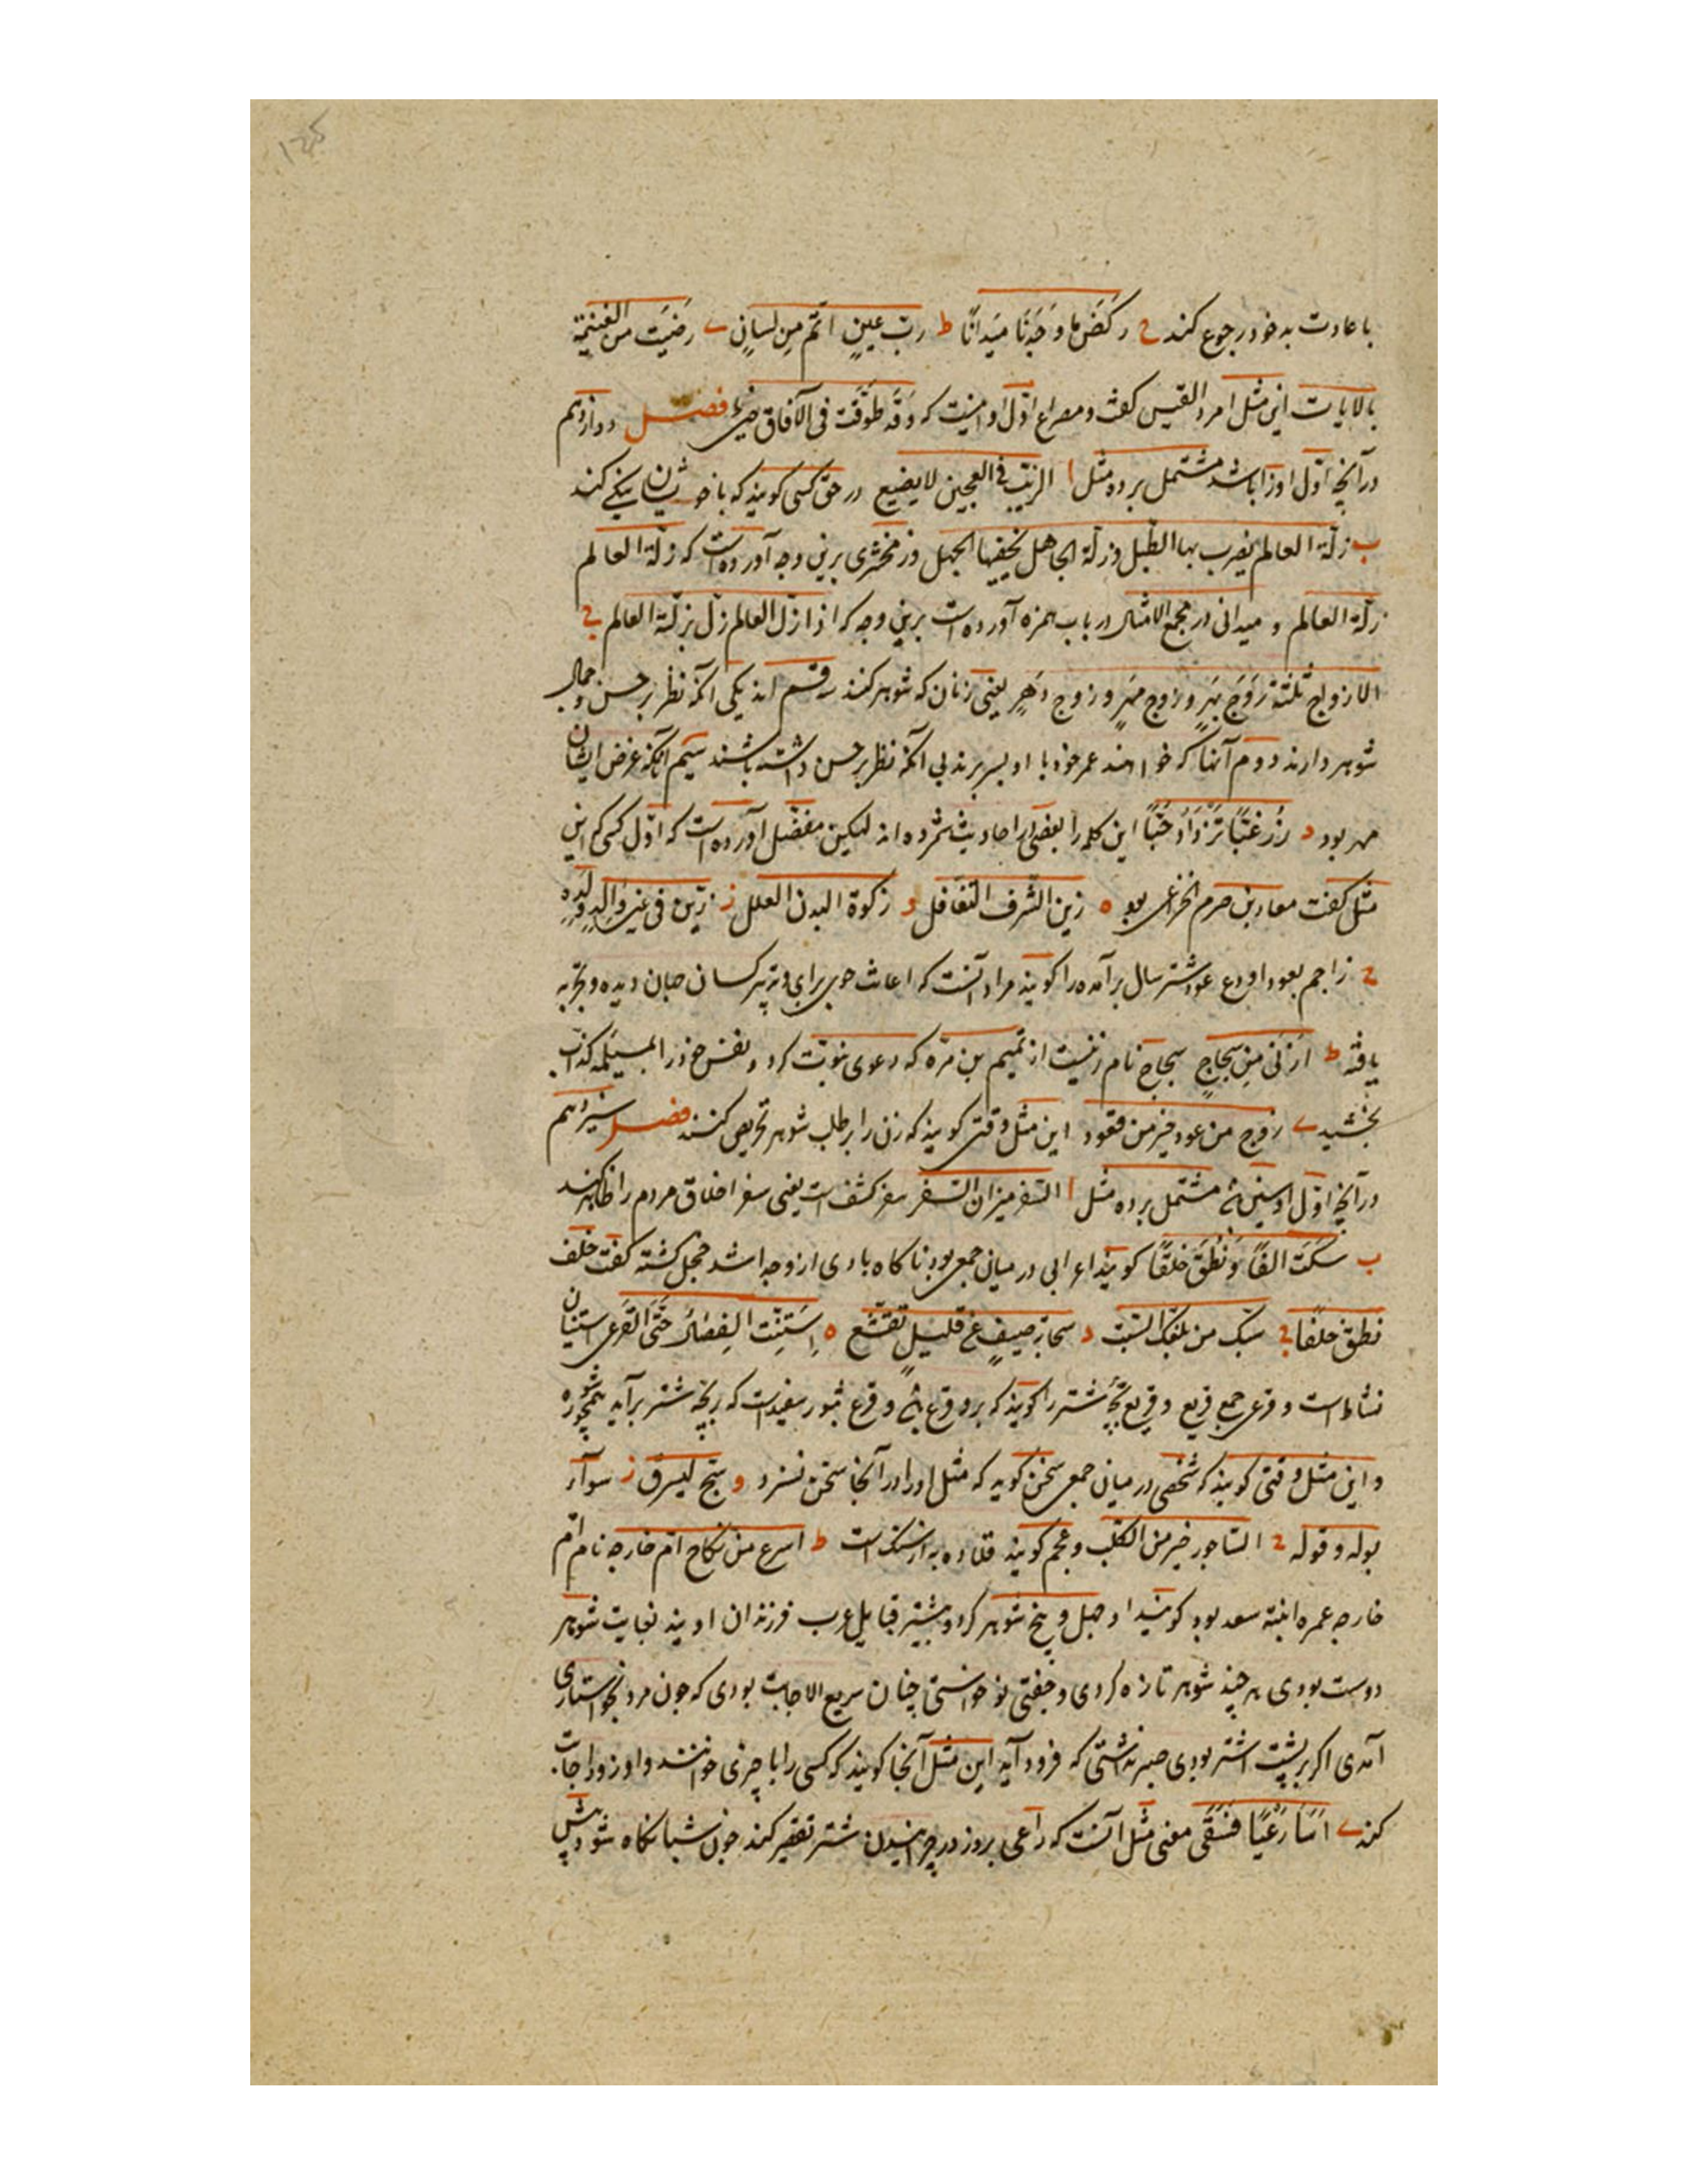 با عادت به خود رجوع کند ح رکض ما وجدنا میدانا ط رب عین اتم من لسان ی رضیت من الغنیمة
بالایاب این مثل امرء القیس گفت و مصراع اول او اینست که وقد طوّفت فی الآفاق حتی فصل دوازدهم
در آنچه اول او زا باشد مشتمل بر ده مثل ا الزیت فی العجین لا یضیع در حق کسی گویند که با خویشان نیکی کند
ب زلّة العالم یضرب بها الطبل و زلّة الجاهل یخفیها الجهل و زمخشری برین وجه آورده است که زلّة العالم
زلّة العالم و میدانی در مجمع الامثال در باب همزه آورده است برین وجه که اذا زلّ العالم زلّ بزلّته العالم ج
الازواج ثلثة زوج بهر و زوج مهر و زوج دهر یعنی زنان که شوهر کنند سه قسم اند یکی آنکه نظر بر حسن و جمال
شوهر دارند دوم آنها که خواهند عمر خود با او بسر برند بی آنکه نظر بر حسن داشته باشند سیم آنکه غرض ایشان
مهر بود د زر غبّا تزدد حبّا این کلمه را بعضی از احادیث شمرده اند لیکن مفضّل آورده است که اول کسی که این
مثل گفت معاد بن صرم الخزاعی بود ه زین الشرف التغافل و زکوة البدن العلل ز زیّن فی عین والد ولده
ح زاحم بعود او دع عود شتر سال برآمده را گویند مراد آنست که اعانت جوی برای و تدبیر کسان جهان دیده و تجربه
یافته ط ازنی من سجاح سجاح نام زنیست از تمیم بن مرّه که دعوی نبوّت کرد و نفس خود را بمسیلمه کذّاب
بخشید ی زوج من عود خیر من قعود این مثل وقتی گویند که زن را بر طلب شوهر تحریص کنند فصل سیزدهم
در آنچه اول او سین مشتمل بر ده مثل ا السفر میزان السفر سفر کشف است یعنی سفر اخلاق مردم را ظاهر کند
ب سکت الفا و نطق خلفا گویند اعرابی در میان جمعی بود ناگاه بادی از وجدا شد خجل گشته گفت خلف
نطق خلفا ج سبّک من بلّغک السّبّ د سحابة صیف عن قلیل تقشّع ه استنّت الفصال حتی القرعی استنان
نشاط است و قرعی جمع قریع و قریع بچه شتر را گویند که برو قرع و قرع بثور سفید است که بر بچه شتر برآید
و این مثل وقتی گویند که شخصی در میان جمعی سخن گوید که مثل او را در آنجا سخن نسزد و سبّح لیسرق ز سوآء
بوله و قوله ح الساجور خیر من الکلب و عجم گویند قلاده به از سگ است ط اسرع من نکاح امّ خارجه نام امّ
خارجه عمره ابنة سعد بود گویند او چهل و پنج شوهر کرد و بیشتر قبایل عرب فرزندان اویند بغایت شوهر
دوست بودی هر چند شوهر تازه کردی و جفتی نو خواستی چنان سریع الاجابت بودی که چون مرد بخواستاری
آمدی اگر بر پشت اشتر بودی صبر نداشتی که فرود آید این مثل آنجا گویند که کسی را با چیزی خوانند و او زود اجابت
کند ی اسآ رعیا فسقی معنی مثل آنست که راعی بروز در چرانیدن شتر تقصیر کند چون شبانگاه شود پیش